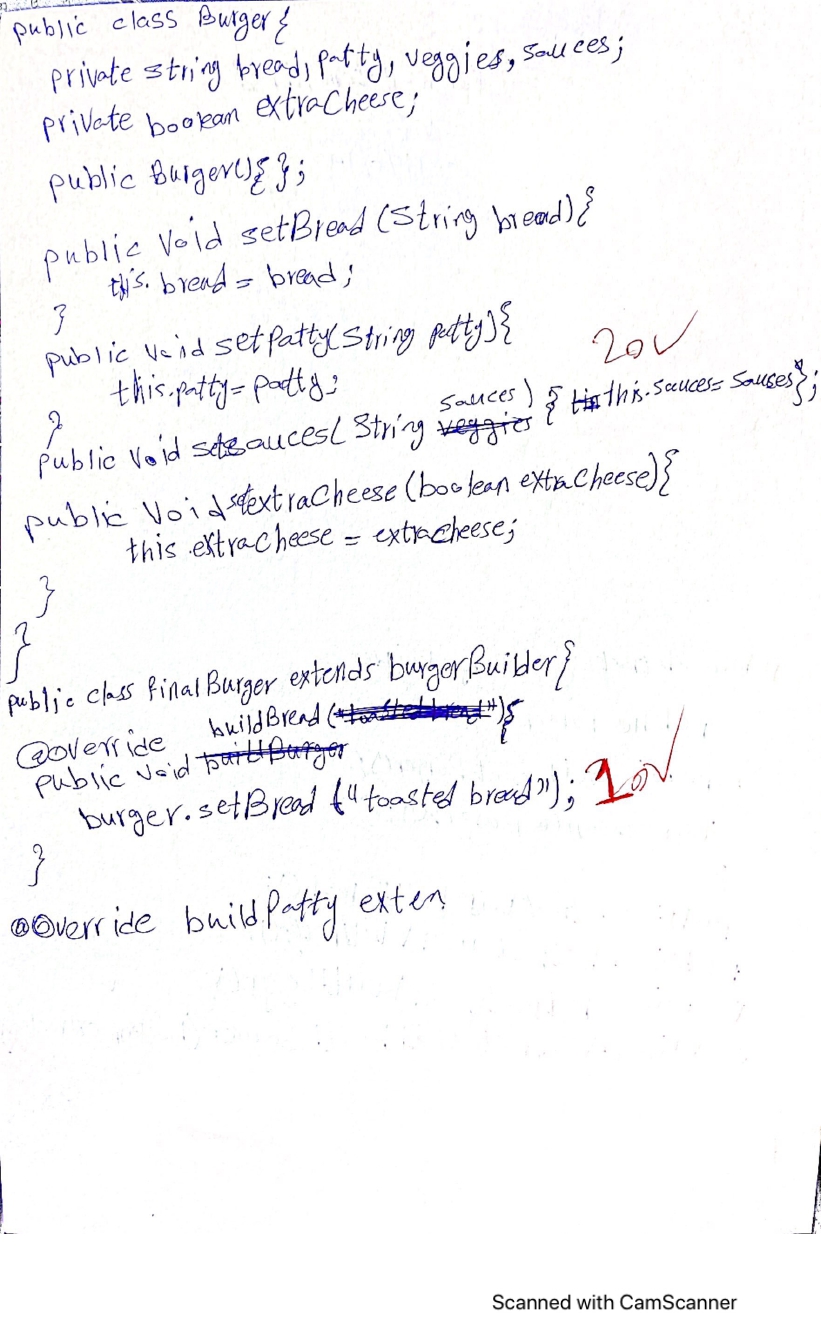 public class Burger{
private string bread, patty, veggies, sauces;
private boolean extraCheese;
public Burger(){ };
public Void setBread (String bread){
this. bread = bread;
}
public Void setPatty(String patty){
20✓
this.patty= patty;
}
public Void setsauces( String veggies sauces) { this.sauces= sauses};
public Void setextraCheese (boolean extraCheese){
this.extraCheese = extracheese;
}
}
public class finalBurger extends burgerBuilder{
@override
public void builtBurger buildBread ("toasted bread"){
burger.setBread ("toasted bread"); 10✓
}
@Override buildPatty exten
Scanned with CamScanner